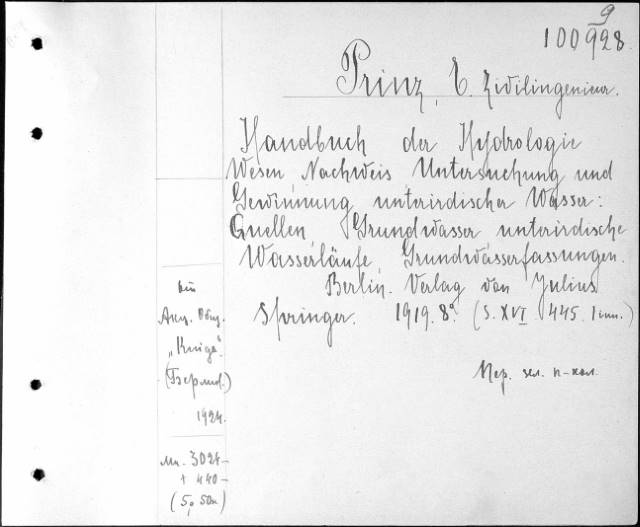 9
100928
Prinz, E. Zivilingenieur.
Handbuch der Hydrologie
Wesen Nachweis Untersuchung und
Gewinnung unterirdischer Wasser:
Quellen Grundwasser unterirdische
Wasserläufe Grundwasserfassungen.
Berlin. Verlag von Julius
Springer. 1919. 8° (S. XVI 445. 1 inn.)
Акц. Общ.
„Книга"
1924.
3024-
+ 440-
Пер. зел. п-кол.